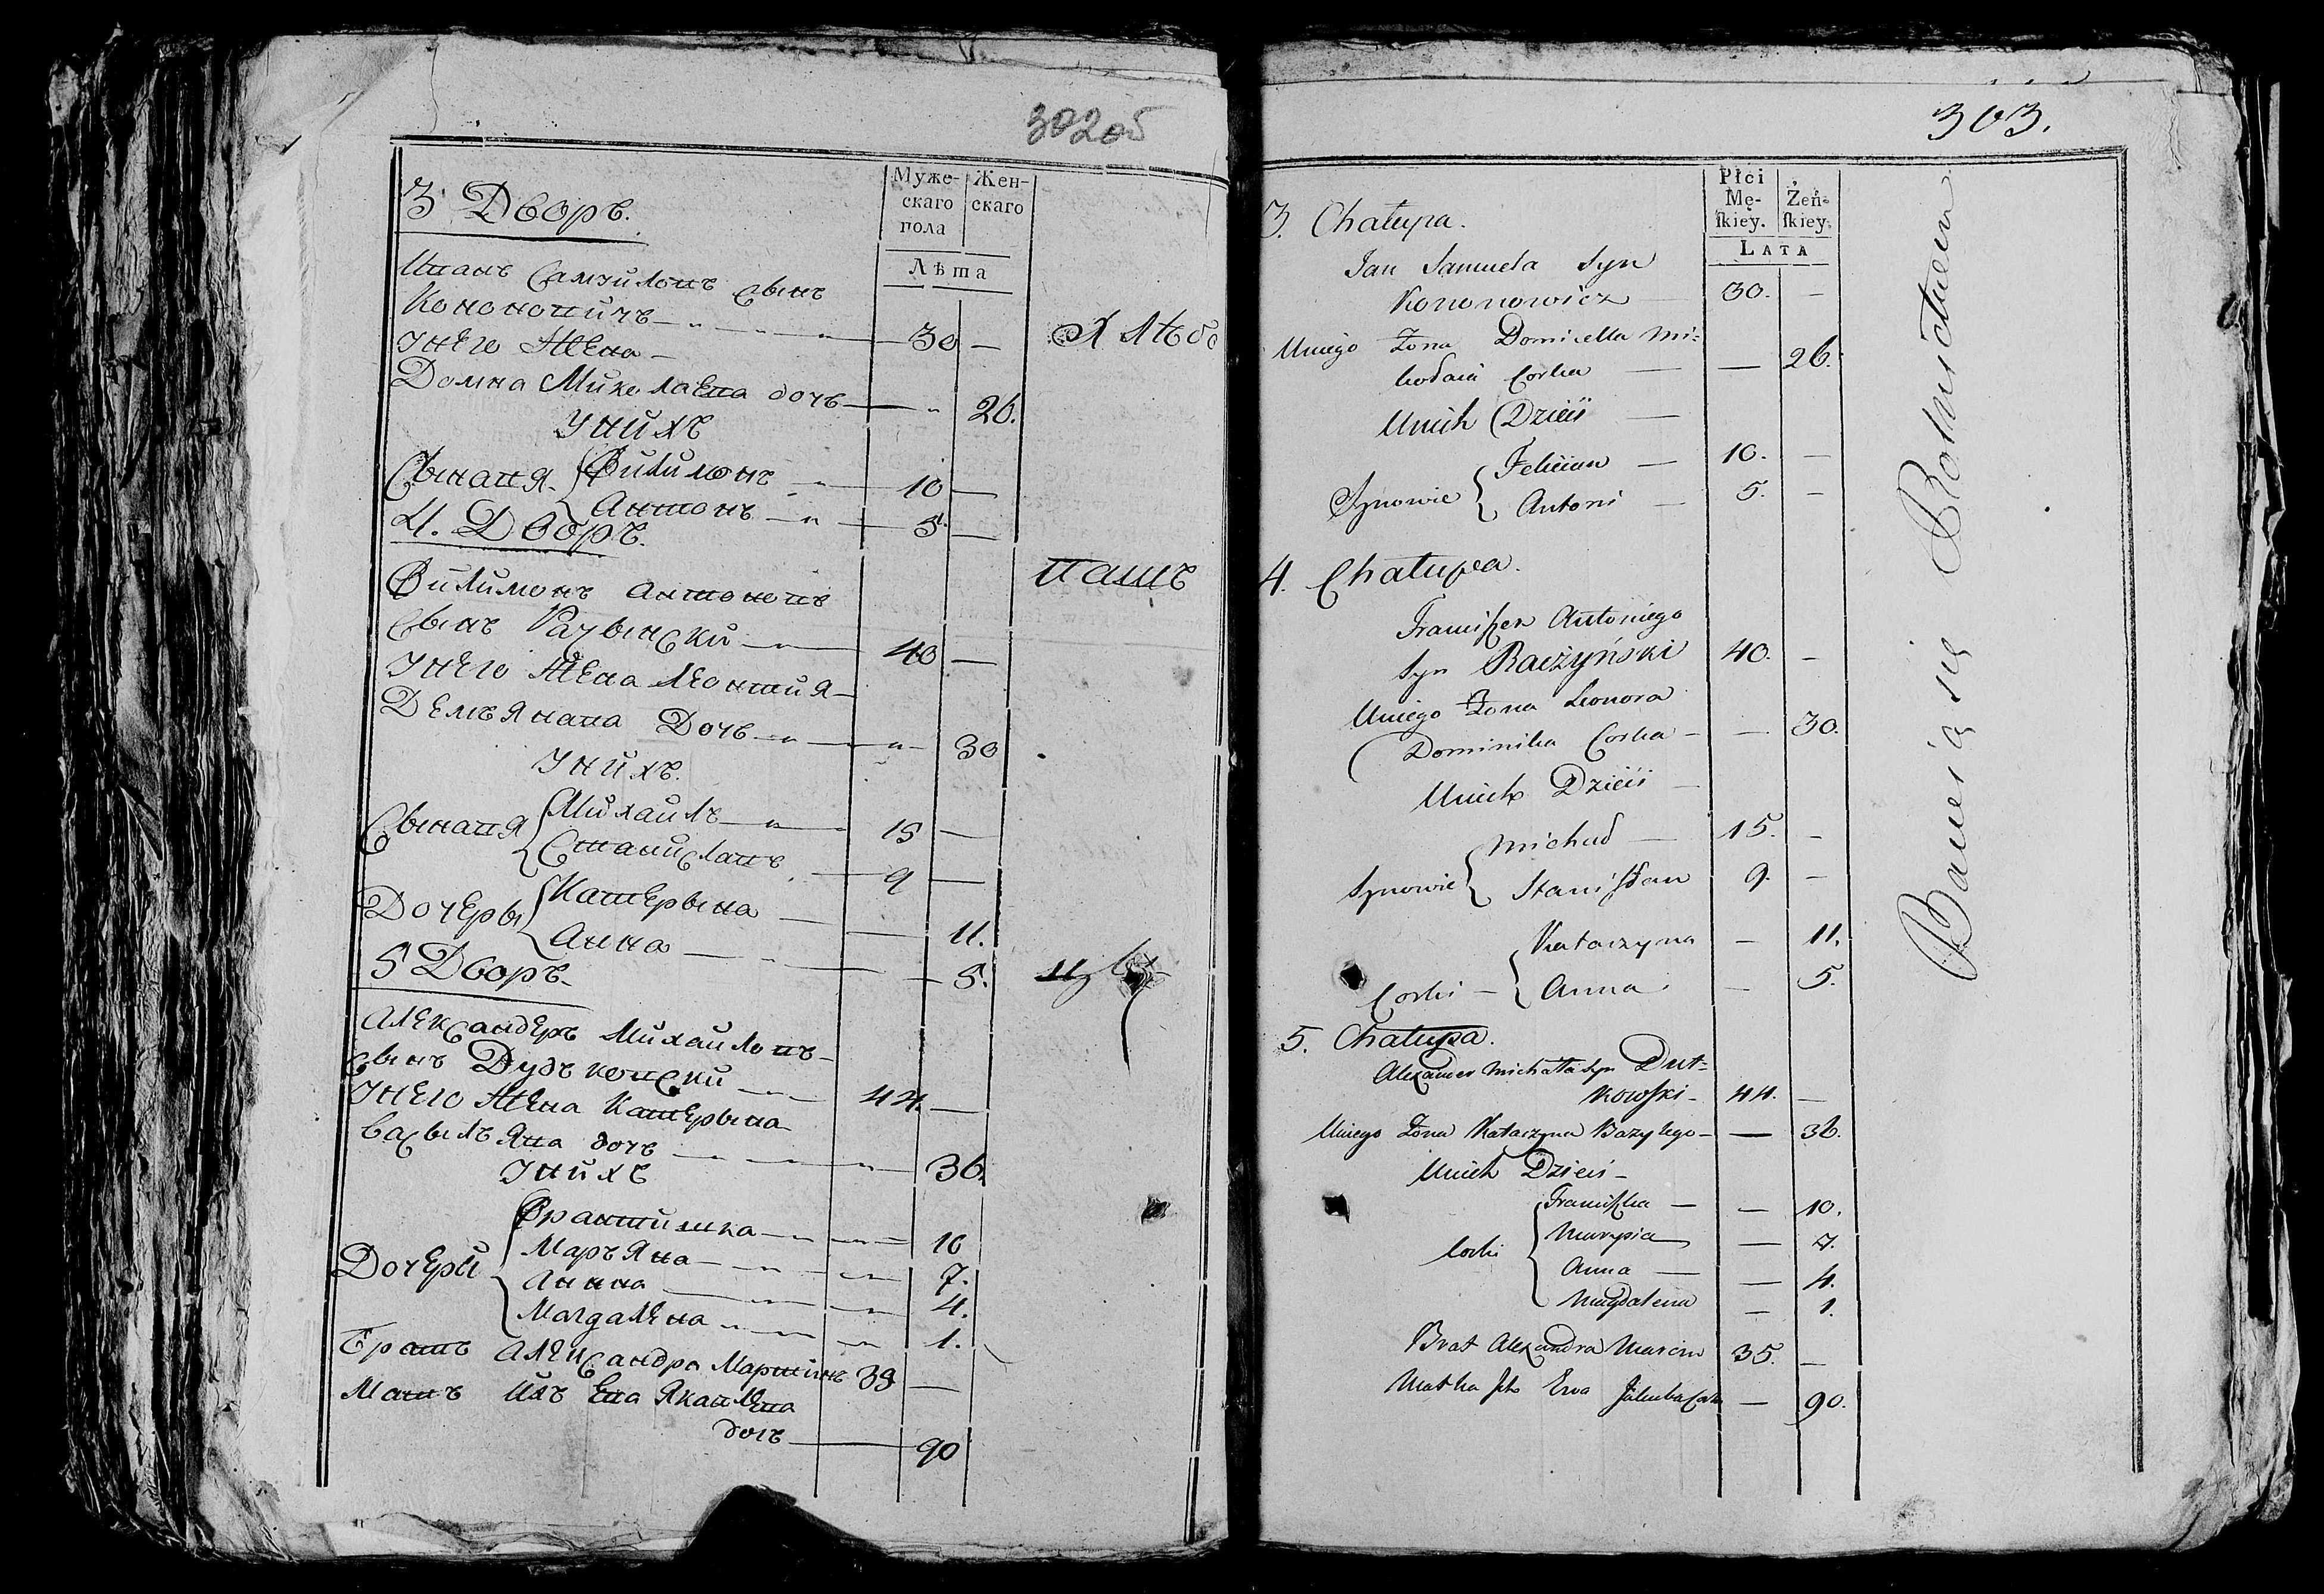 302об
Муже-
скаго
пола
Жен-
скаго
Лѣта
3 Дворъ.
Иванъ Самуиловъ сынъ
Кононовичъ 30 —
У него жена —
Домна Миколаева дочъ 26.
У нихъ
Сыновя Филимонъ 10 —
Антонъ 5 —
4. Дворъ.
Филимонъ Антоновъ
сынъ Рачынски 40 —
У него жена Леонтия
Демъянава дочъ 30
У нихъ.
Сынавя Михаилъ 15 —
Станиславъ 9 —
Дочеры Катерына 11.
Анна 5.
5 Дворъ.
Александеръ Михаиловъ
сынъ Дудъковски 44. —
У него жена Катерына
Васылъяна дочъ 36.
У нихъ
Дочеры Францишка 10
Маръяна 7.
Анна 4.
Магдалена 1.
Братъ Александра Мартинъ 35 —
Мать ихъ Ева Якавлева
дочъ 90
Хлѣбо
пашъ
303.
Płci
Mę-
ſkiey.
Żeń-
ſkiey.
LATA
3. Chałupa.
Jan Samuela Syn
Kononowicz 30. —
Uniego Żona Domicella Mi-
kołaia Corka — 26.
Unich Dzieci
Synowie Felician 10. —
Antoni 5. —
4. Chałupa.
Franciszek Antoniego
Syn Raczyński 40. —
Uniego Żona Leonora
Dominika Corka — 30.
Unich Dzieci
Synowie Michał 15. —
Stanisław 9. —
Katarzyna — 11.
Corki — Anna — 5.
5. Chałupa.
Alexander Michała Syn Dut-
kowski 44. —
Uniego Żona Katarzyna Bazylego — 36.
Unich Dzieci —
Franciszka — 10.
Corki Marysia — 7.
Anna — 4.
Magdalena — 1.
Brat Alexandra Marcin 35. —
Matka Ich Ewa Jakuba Corka — 90.
Bawią się Rolnictwem